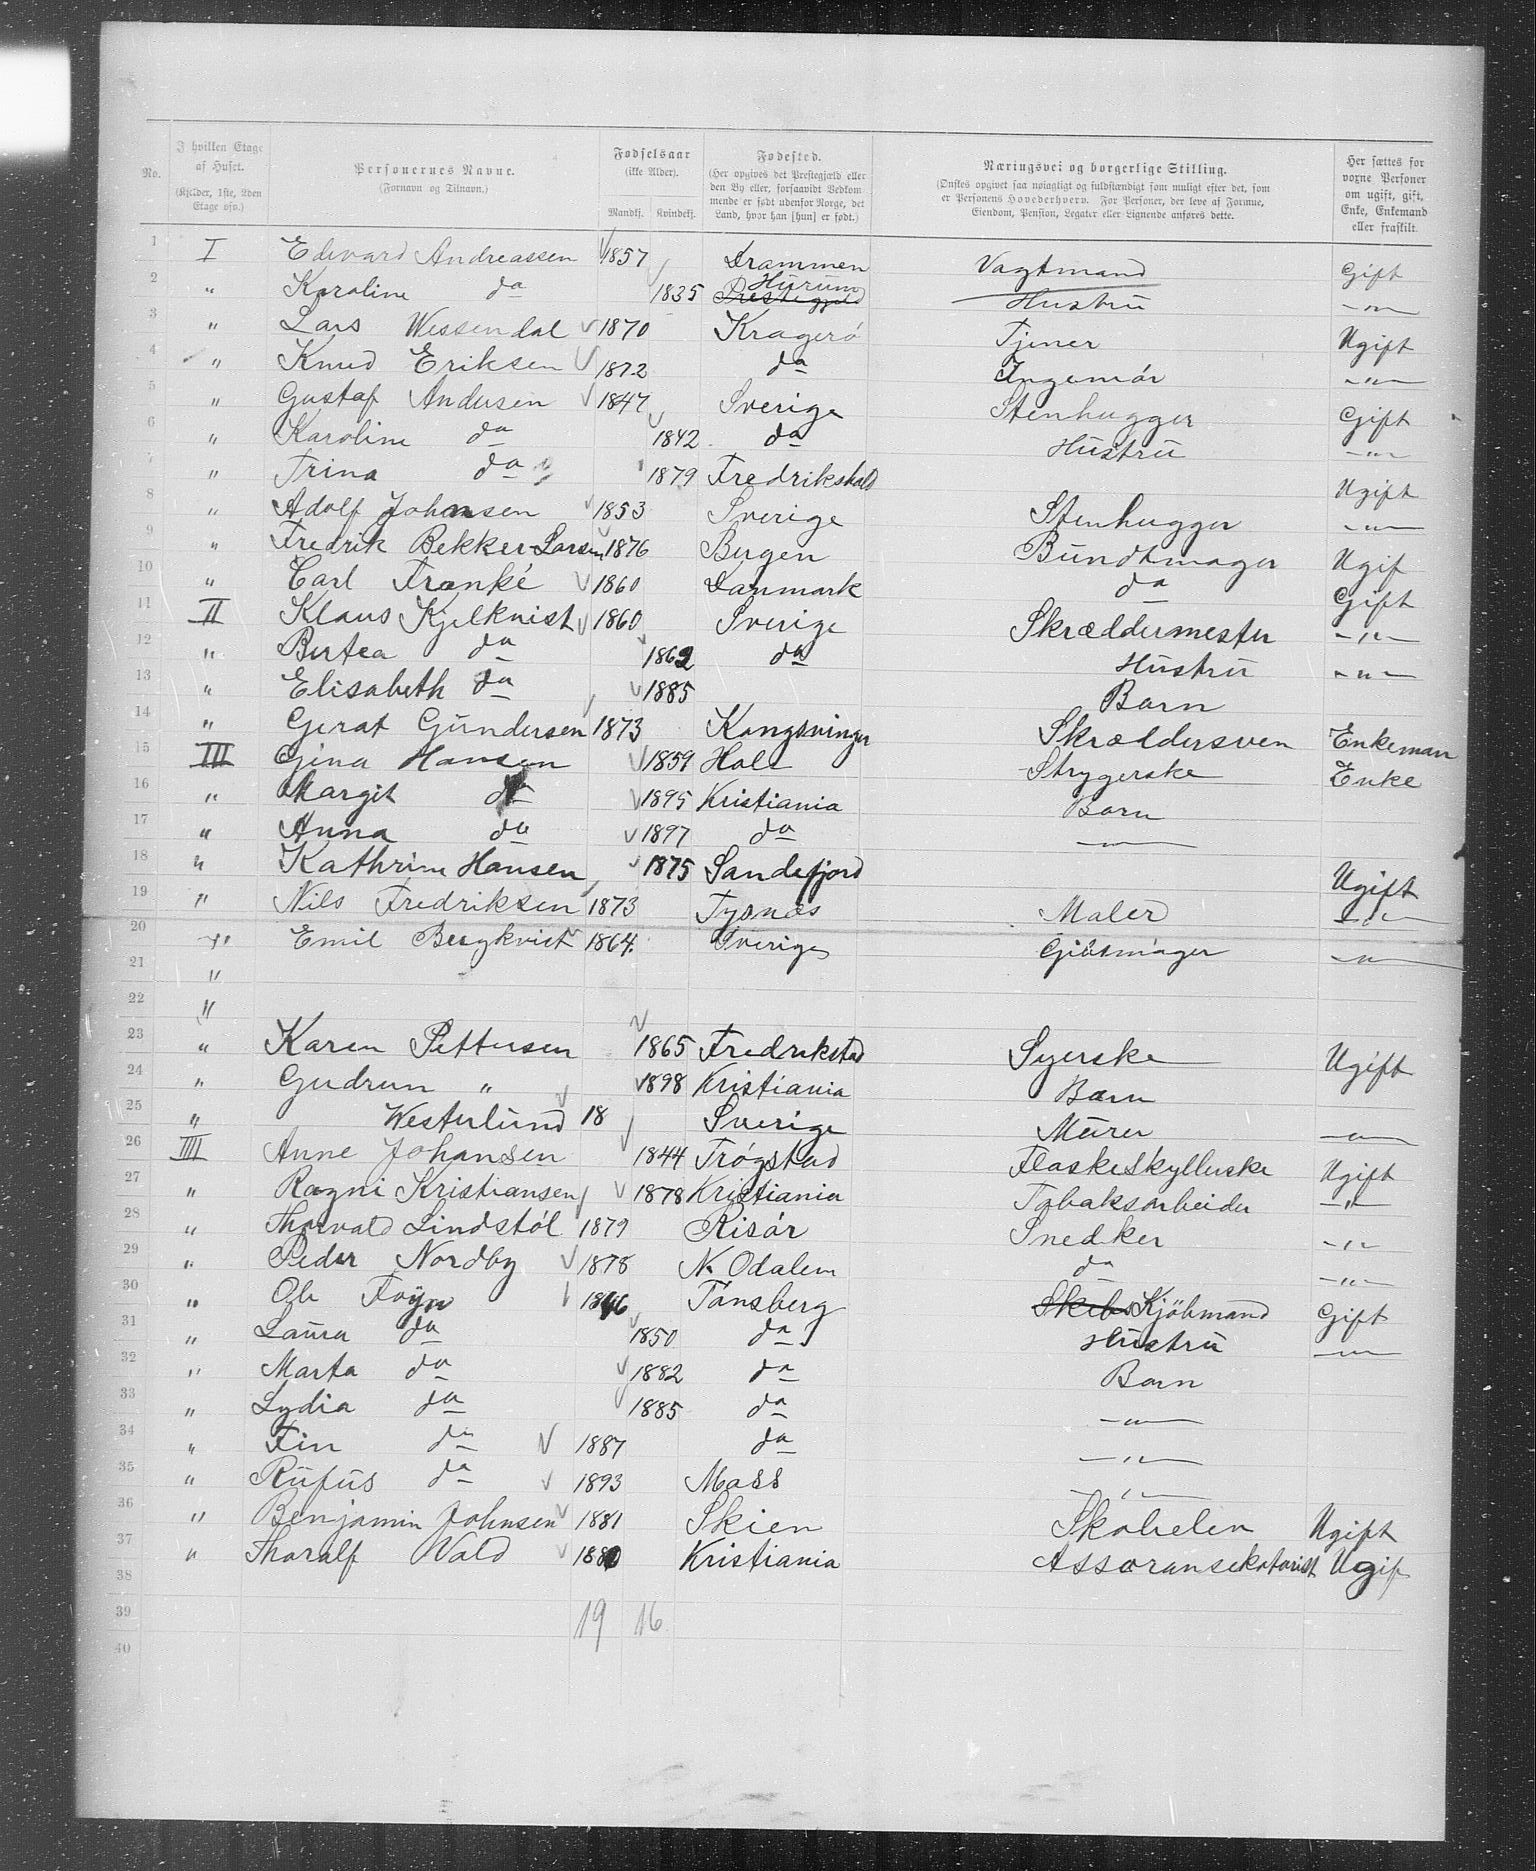 No. | I hvilken Etage af Huset. (Kjelder, 1ste, 2den Etage osv.) | Personernes Navne. (Fornavn og Tilnavn.) | Fødselsaar (ikke Alder). Mandkj. Kvindekj. | Fødested. (Her opgives det Prestegjæld eller den By eller, forsaavidt Vedkommende er født udenfor Norge, det Land, hvor han [hun] er født.) | Næringsvei og borgerlige Stilling. (Ønskes opgivet saa nøiagtigt og fuldstændigt som muligt efter det, som er Personens Hovederhverv. For Personer, der leve af Formue, Eiendom, Pension, Legater eller Lignende anføres dette. | Her sættes for voxne Personer om ugift, gift, Enke, Enkemand eller fraskilt.
1 I Edevard Andreassen 1857 Drammen Vagtmand Gift
2 " Karoline do 1835 Hurum Prestegjæld Hustru -"-
3 " Lars Wessendal 1870 Kragerö Tjener Ugift
4 " Knud Eriksen 1872 do Ingeniör -"-
5 " Gustaf Andersen 1847 Sverige Stenhugger Gift
6 " Karoline do 1842 do Hustru -"-
7 " Trina do 1879 Fredrikshald Ugift
8 " Adolf Johansen 1853 Sverige Stenhugger -"-
9 " Fredrik Bekker-Larsen 1876 Bergen Bundtmager Ugif
10 " Carl Franké 1860 Danmark do Gift
11 II Klaus Kjelkvist 1860 Sverige Skræddermester -"-
12 " Bertea do 1862 do Hustru -"-
13 " Elisabeth do 1885 Barn
14 " Gerat Gundersen 1873 Kongsvinger Skræddersven Enkeman
15 III Gina Hansen 1859 Hole Strygerske Enke
16 " Margit do 1895 Kristiania Barn
17 " Anna do 1897 do -"-
18 " Kathrine Hansen 1875 Sandefjord Ugift
19 " Nils Fredriksen 1873 Tysnes Maler -"-
20 " Emil Bergkvist 1864. Sverige Gibsmager -"-
21 "
22 "
23 " Karen Pettersen 1865 Fredrikstad Syerske Ugift
24 " Gudrun " 1898 Kristiania Barn
25 " Westerlund 18 Sverige Murer -"-
26 IIII Anne Johansen 1844 Trögstad Flaskeskyllerske Ugift
27 " Ragni Kristiansen 1878 Kristiania Tobaksarbeider -"-
28 " Thorvald Lindstöl 1879 Risör Snedker -"-
29 " Peder Nordby 1878 N. Odalen do -"-
30 " Ole Foyn 1846 Tönsberg Skibs Kjöbmand Gift
31 " Laura do 1850 do Hustru -"-
32 " Marta do 1882 do Barn
33 " Lydia do 1885 do -"-
34 " Fin do 1887 do -"-
35 " Rufus do 1893 Moss -"-
36 " Benjamin Johnsen 1881 Skien Skoelev Ugift
37 " Thoralf Wold 1880 Kristiania Assoransekotorist Ugif
38
39 19 16
40